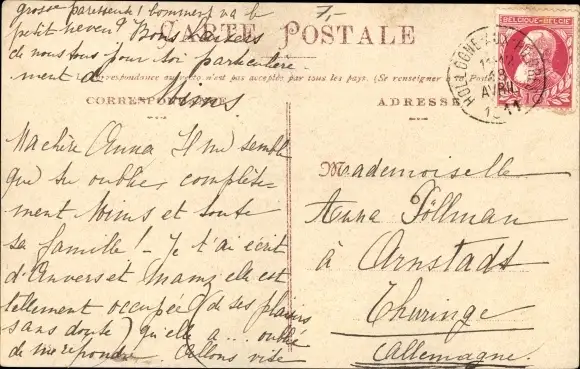 grosse paresseuse! Comment va le
petit neveu? Bons baisers
de nous tous pour toi particulière
ment de
Mims
7,-
CARTE POSTALE
Correspondance au recto n'est pas acceptée par tous les pays. (Se renseigner à la Poste)
CORRESPONDANCE
ADRESSE
BELGIQUE-BELGIË
HOLLOGNE-AUX-PIERRES
AVRIL
1911
Ma chère Anna Il me semble
que tu oublies complète-
ment Mims et toute
sa famille! - Je t'ai écrit
d'Anvers et mamz elle est
tellement occupée (de ses plaisirs
sans doute) qu'elle a... oublié
de me répondre. Allons vite
Mademoiselle
Anna Föllman
à Arnstadt
Thuringe
Allemagne.